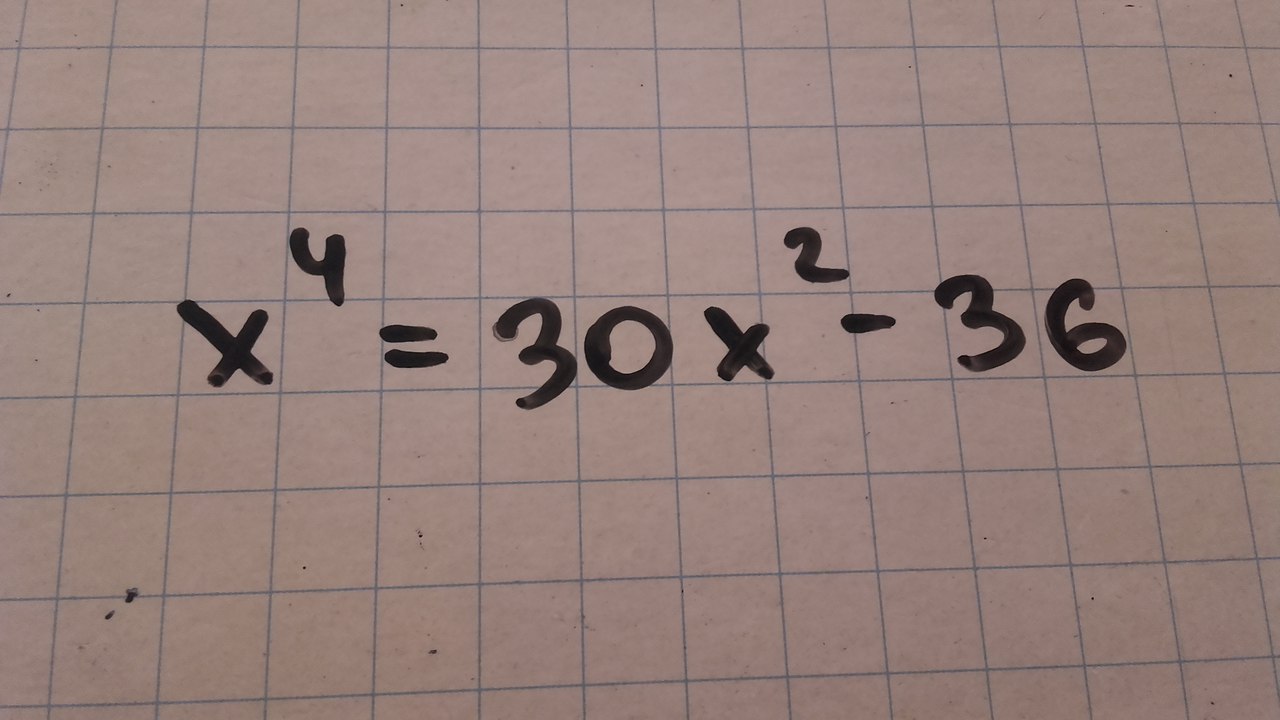 x⁴ = 30x² - 36